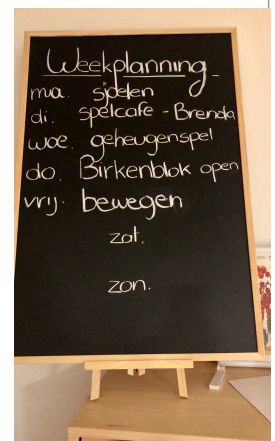 Weekplanning
ma. sjoelen
di. spelcafe - Brenda
woe. geheugenspel
do. Birkenblok open
vrij. bewegen
zat.
zon.